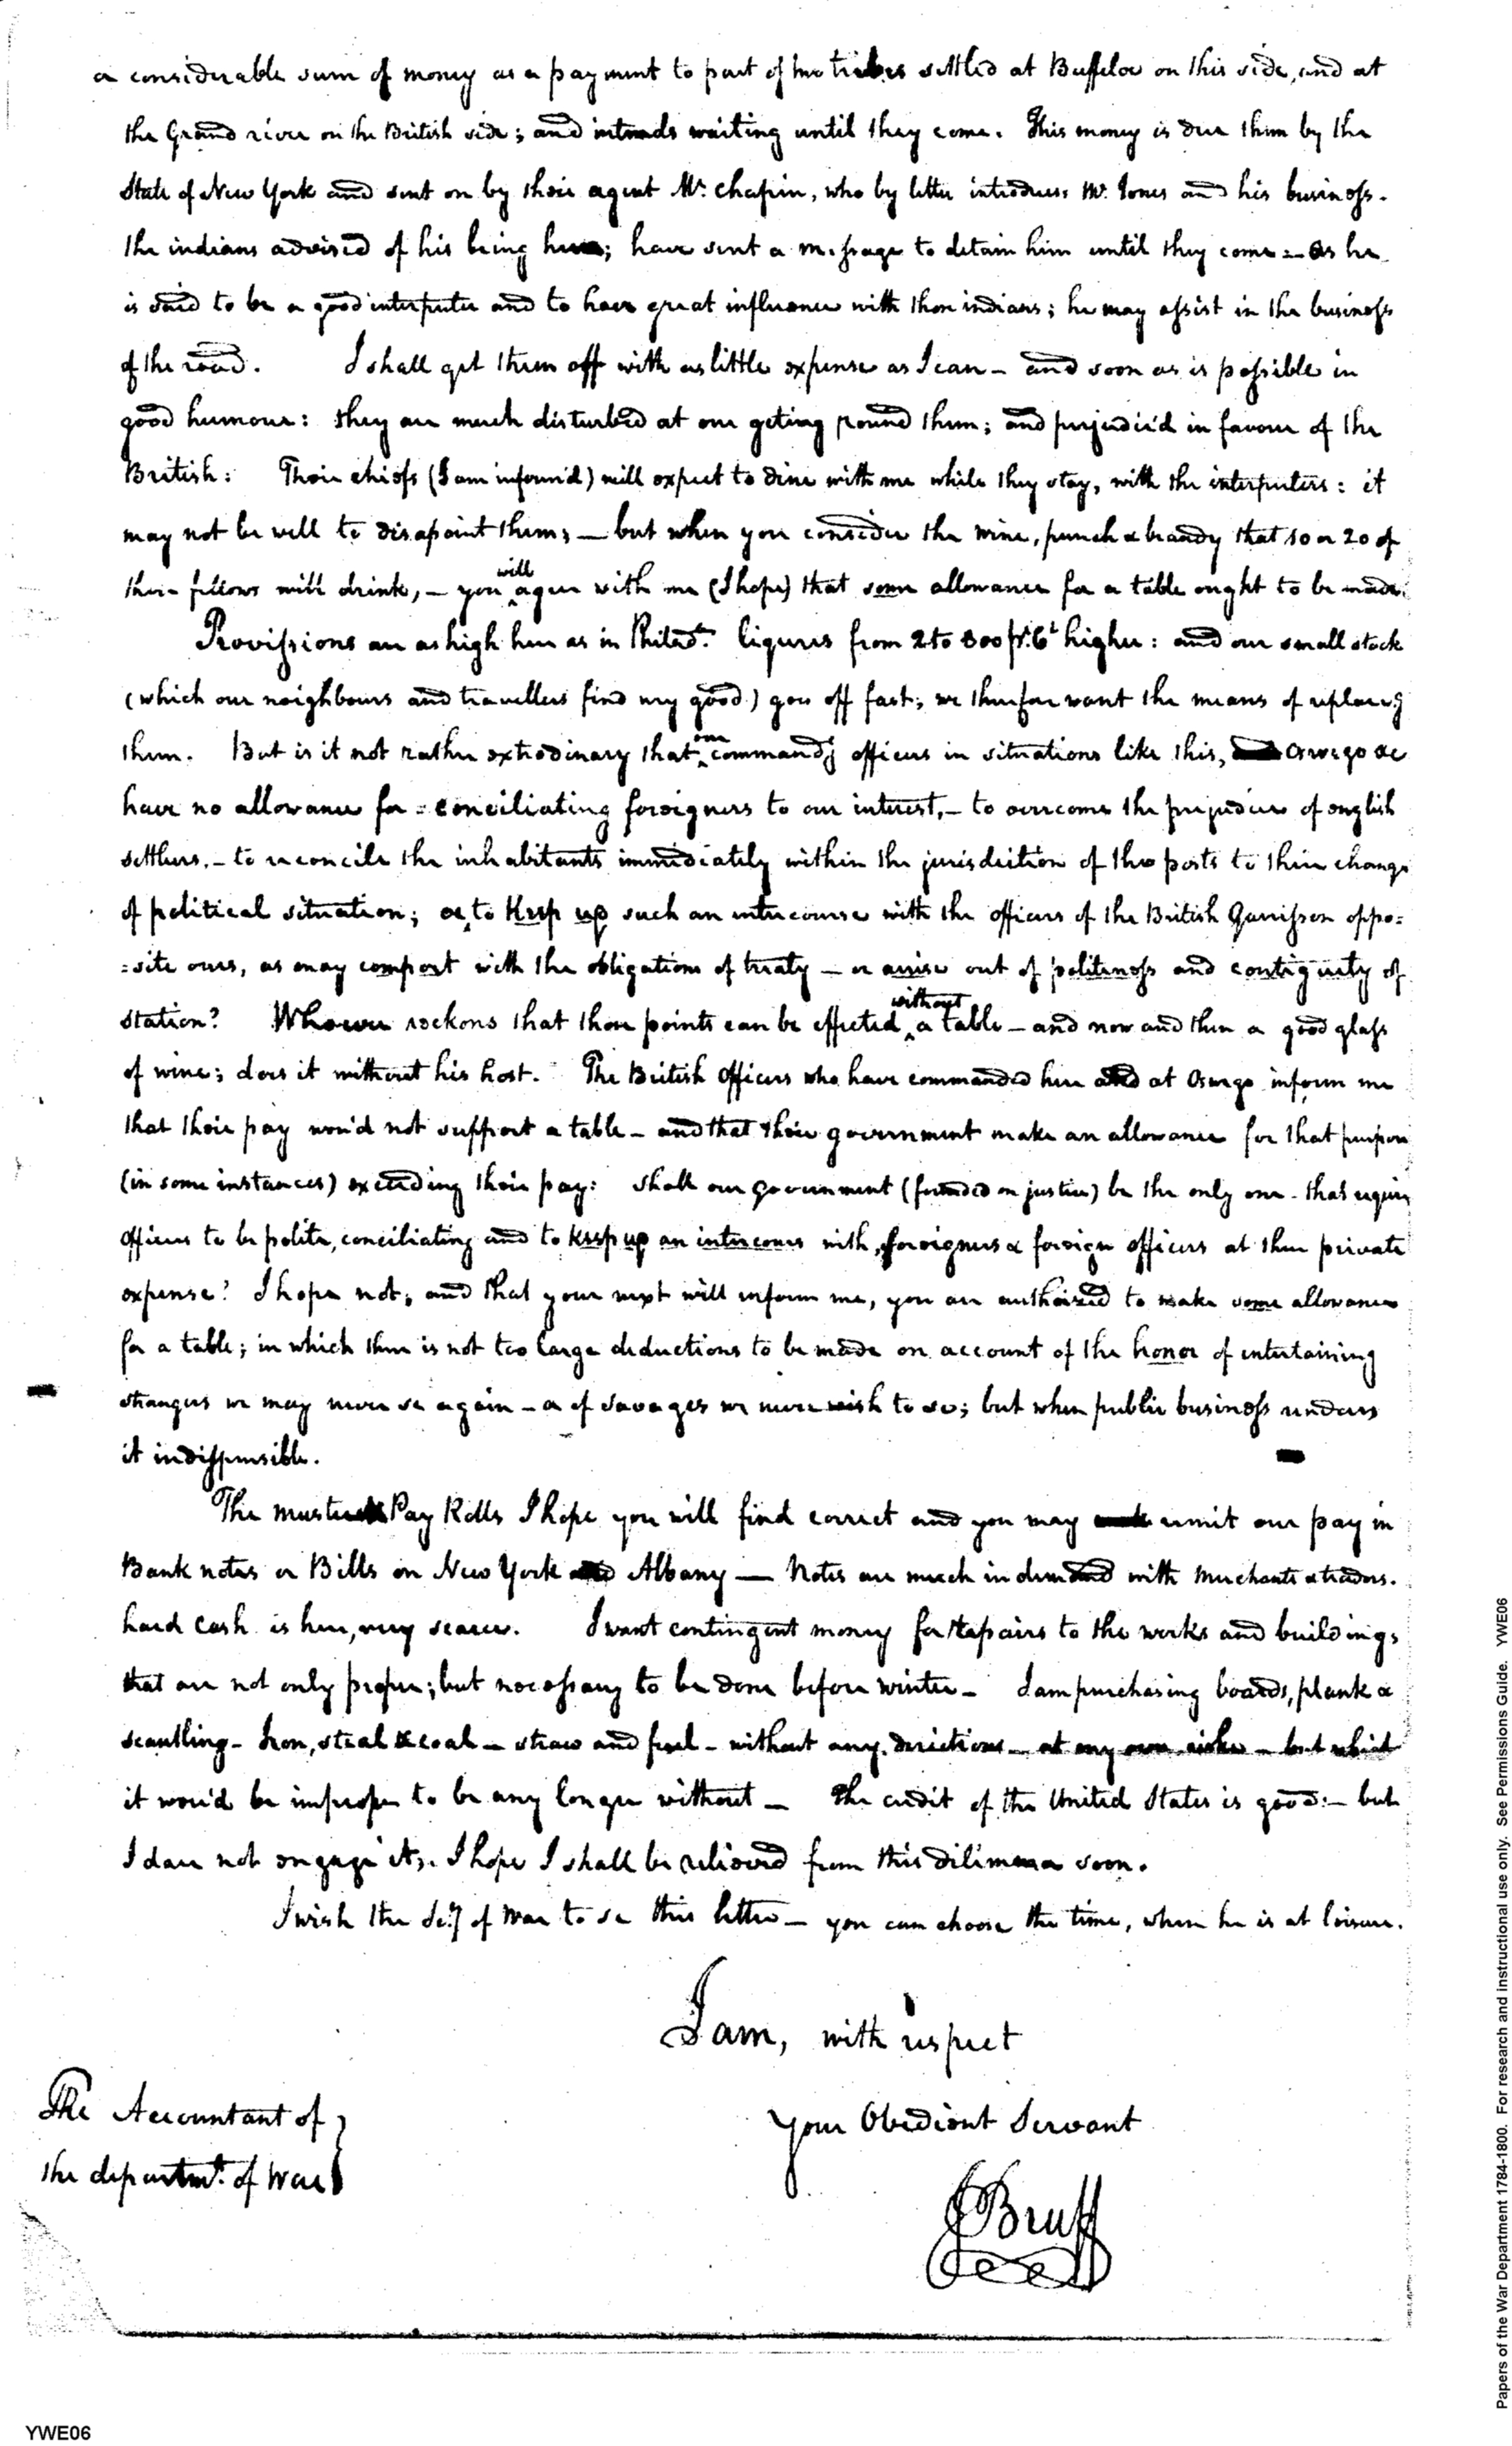 a considerable sum of money as a payment to part of two tribes settled at Buffeloe on this side, and at
the Grand river on the British side; and intends waiting until they come. This money is due them by the
State of New York and sent on by their agent Mr. Chapin, who by letter introduces Mr. Jones and his business.
the indians advised of his being here; have sent a message to detain him until they come :- as he
is said to be a good interpreter and to have great influence with those indians; he may assist in the business
of the road. I shall get them off with as little expense as I can - and soon as is possible in
good humour: they are much disturbed at our geting round them; and prejudic'd in favour of the
British: Their chiefs (I am inform'd) will expect to dine with me while they stay, with the interpreters: it
may not be well to disapoint them; - but when you consider the wine, punch & brandy that 10 or 20 of
these fellows will drink, - you will agree with me (I hope) that some allowance for a table ought to be made.
Provissions are as high here as in Philada. liqures from 2 to 300 pr. Ct higher: and our small stock
(which our neighbours and travellers find very good) goes off fast; we therefore want the means of replaceg
them. But is it not rather extrodinary that our commandg officers in situations like this, Oswego &c
have no allowance for conciliating foreigners to our interest, - to overcome the prejudices of english
settlers, - to reconcile the inhabitants immediately within the jurisdiction of the posts to their change
of political situation; or to keep up such an intercourse with the officers of the British Garrisson oppo=
=site ours, as may comport with the obligations of treaty - or arrise out of politeness and contiguity of
station? Whoever reckons that those points can be effected without a table - and now and then a good glass
of wine; does it without his host. The British Officers who have commanded here and at Oswego inform me
that their pay wou'd not support a table - and that their government make an allowance for that purpose
(in some instances) exceeding their pay: shall our government (founded on justice) be the only one that require
officers to be polite, conciliating and to keep up an intercourse with foreigners & foreign officers at their private
expense? I hope not; and that your next will inform me, you are authorized to make some allowance
for a table; in which there is not too large deductions to be made on account of the honor of entertaining
strangers we may never se again - or of savages we never wish to se; but when public business renders
it indisspensible.
The muster & Pay Rolls I hope you will find correct and you may remit our pay in
Bank notes or Bills on New York and Albany - Notes are much in demand with merchants & traders.
hard cash is here, very scarce. I want contingent money for repairs to the works and buildings
that are not only proper; but necessary to be done before winter - I am purchasing boards, plank &
scantling - Iron, steal & coal - straw and fuel - without any directions - at my own riske - but which
it wou'd be improper to be any longer without - The credit of the United States is good :- but
I dare not engage it. I hope I shall be relieved from this dilimma soon.
I wish the Secy of War to se this letter - you can choose the time, when he is at leisure.
I am, with respect
Your Obedient Servant
JBruff
The Accountant of
the departmt. of War
YWE06
Papers of the War Department 1784-1800. For research and instructional use only. See Permissions Guide. YWE06